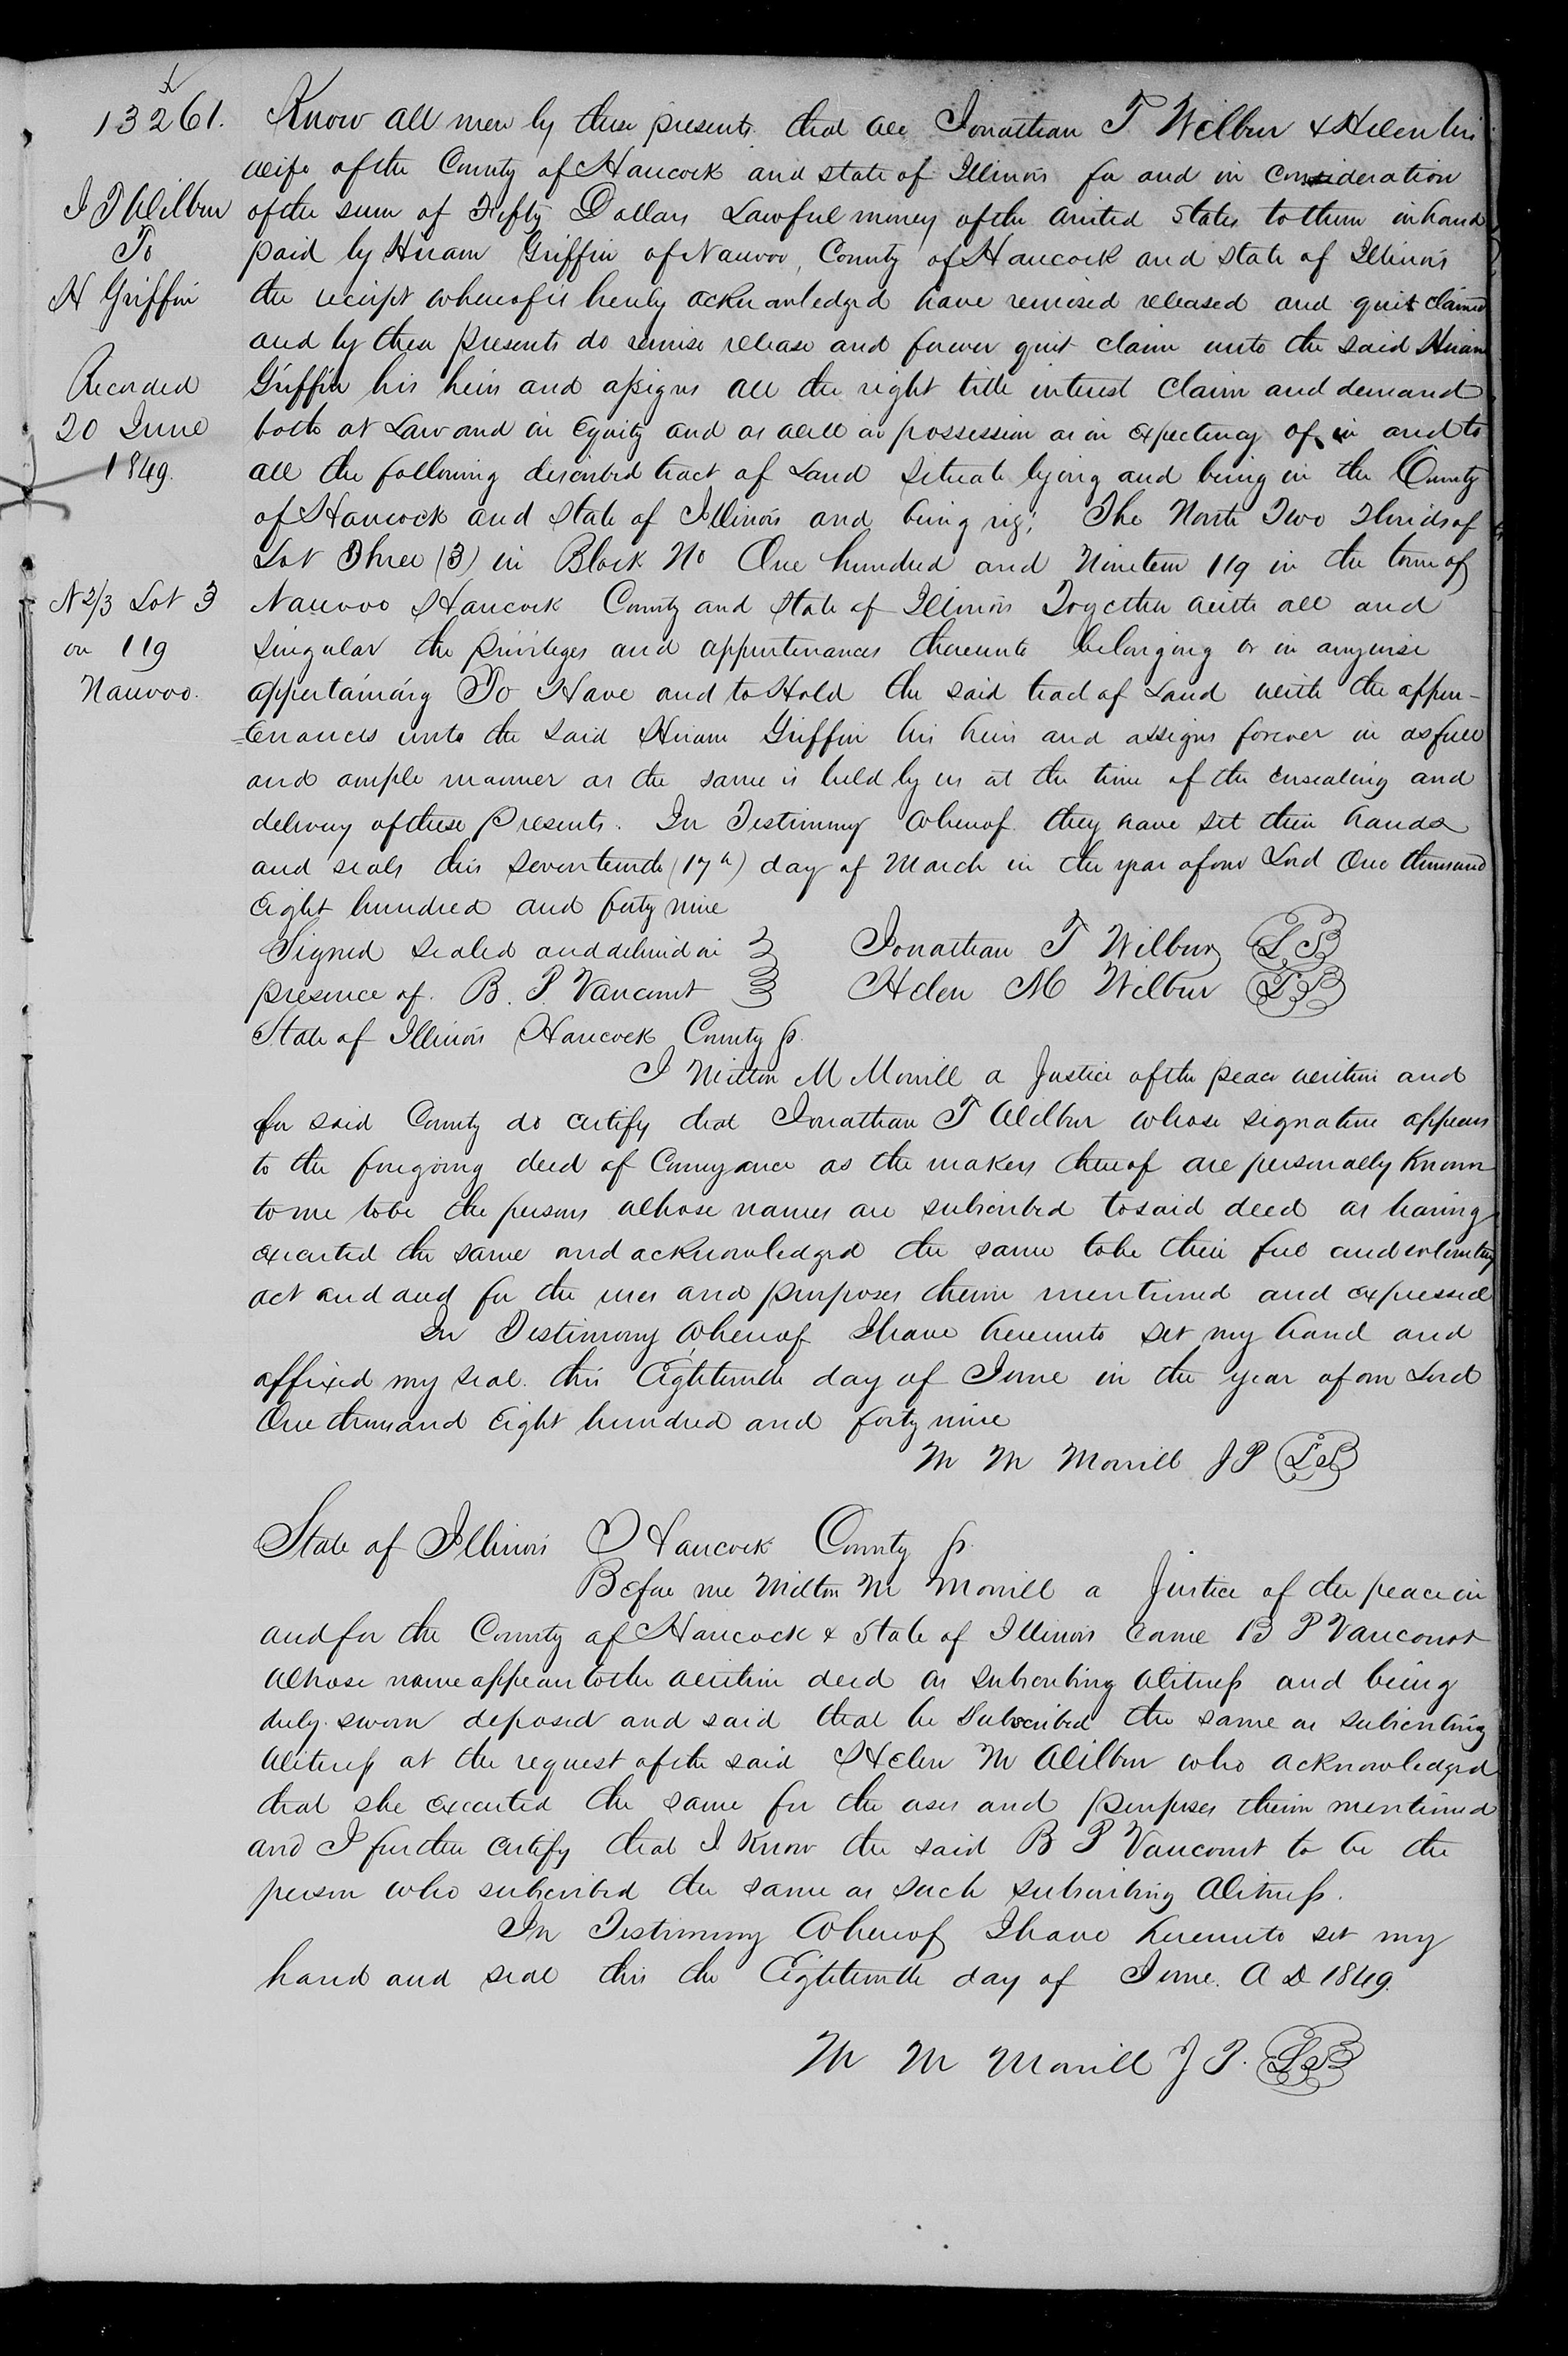 13261.
I T Wilbur
To
H Griffin
Recorded
20 June
1849.
N 2/3 Lot 3
on 119
Nauvoo.
Know all men by these presents that we Jonathan T Wilbur & Helen his
wife of the County of Hancock and state of Illinois for and in consideration
of the sum of Fifty Dollars Lawful money of the united states to them in hand
paid by Hiram Griffin of Nauvoo, County of Hancock and state of Illinois
the receipt whereof is hereby acknowledged have remised released and quit claimed
and by these presents do remise release and forever quit claim unto the said Hiram
Griffin his heirs and assigns all the right title interest claim and demand
both at Law and in Equity and as well in possession as in expectency of in and to
all the following discribed tract of Land situate lying and being in the County
of Hancock and State of Illinois and being viz; The North Two Thirds of
Lot Three (3) in Block No One hundred and Nineteen 119 in the town of
Nauvoo Hancock County and State of Illinois Together with all and
singular the privileges and appurtenances thereunto belonging or in anywise
appertaining To Have and to Hold the said tract of Land with the appur-
=tenances unto the said Hiram Griffin his heirs and assigns forever in as full
and ample manner as the same is held by us at the time of the ensealing and
delivery of these Presents. In Testimony whereof they have set their hands
and seals this seventeenth (17th) day of March in the year of our Lord One thousand
Eight hundred and forty nine
Signed sealed and delivered in
presence of. B. P. Vancourt
Jonathan T Wilbur LS
Helen M Wilbur LS
State of Illinois Hancock County ss.
I Milton M Morrill a Justice of the peace within and
for said County do certify that Jonathan T Wilbur whose signature appears
to the foregoing deed of Conveyance as the makers thereof are personally known
to me to be the persons whose names are subscribed to said deed as having
executed the same and acknowledged the same to be their free and voluntary
act and deed for the uses and purposes therein mentioned and expressed
In Testimony whereof I have hereunto set my hand and
affixed my seal this Eighteenth day of June in the year of our Lord
One thousand Eight hundred and forty nine
M M Morrill J P LS
State of Illinois Hancock County ss.
Before me Milton M Morrill a Justice of the peace in
and for the County of Hancock & State of Illinois came B P Vancourt
whose name appears to the within deed as subscribing Witness and being
duly sworn deposed and said that he Subscribed the same as subscribing
Witness at the request of the said Helen M Wilbur who acknowledged
that she executed the same for the uses and purposes therein mentioned
and I further certify that I know the said B P Vancourt to be the
person who subscribed the same as such subscribing Witness.
In Testimony whereof I have hereunto set my
hand and seal this the Eighteenth day of June. A D 1849.
M M Morrill J P. LS